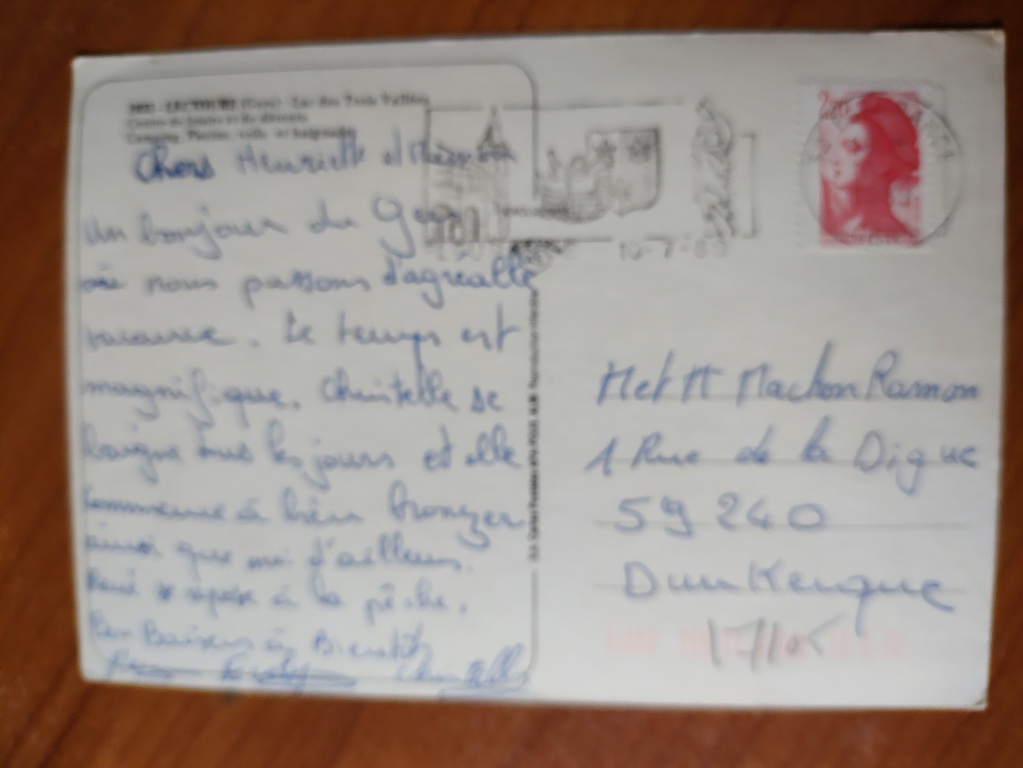 LECTOURE (Gers) - Lac des Trois Vallées
Chers Henriette et
un bonjour du Gers
où nous passons d'agréable
vacance. Le temps est
magnifique. Christelle se
baigne tous les jours et elle
commence à bien bronzer
ainsi que moi d'ailleurs.
René se à la pêche.
Bon Baisers à Bientôt
Christelle
2,20
10-7-
M et M Machon Ramon
1 Rue de la Digue
59 240
Dunkerque